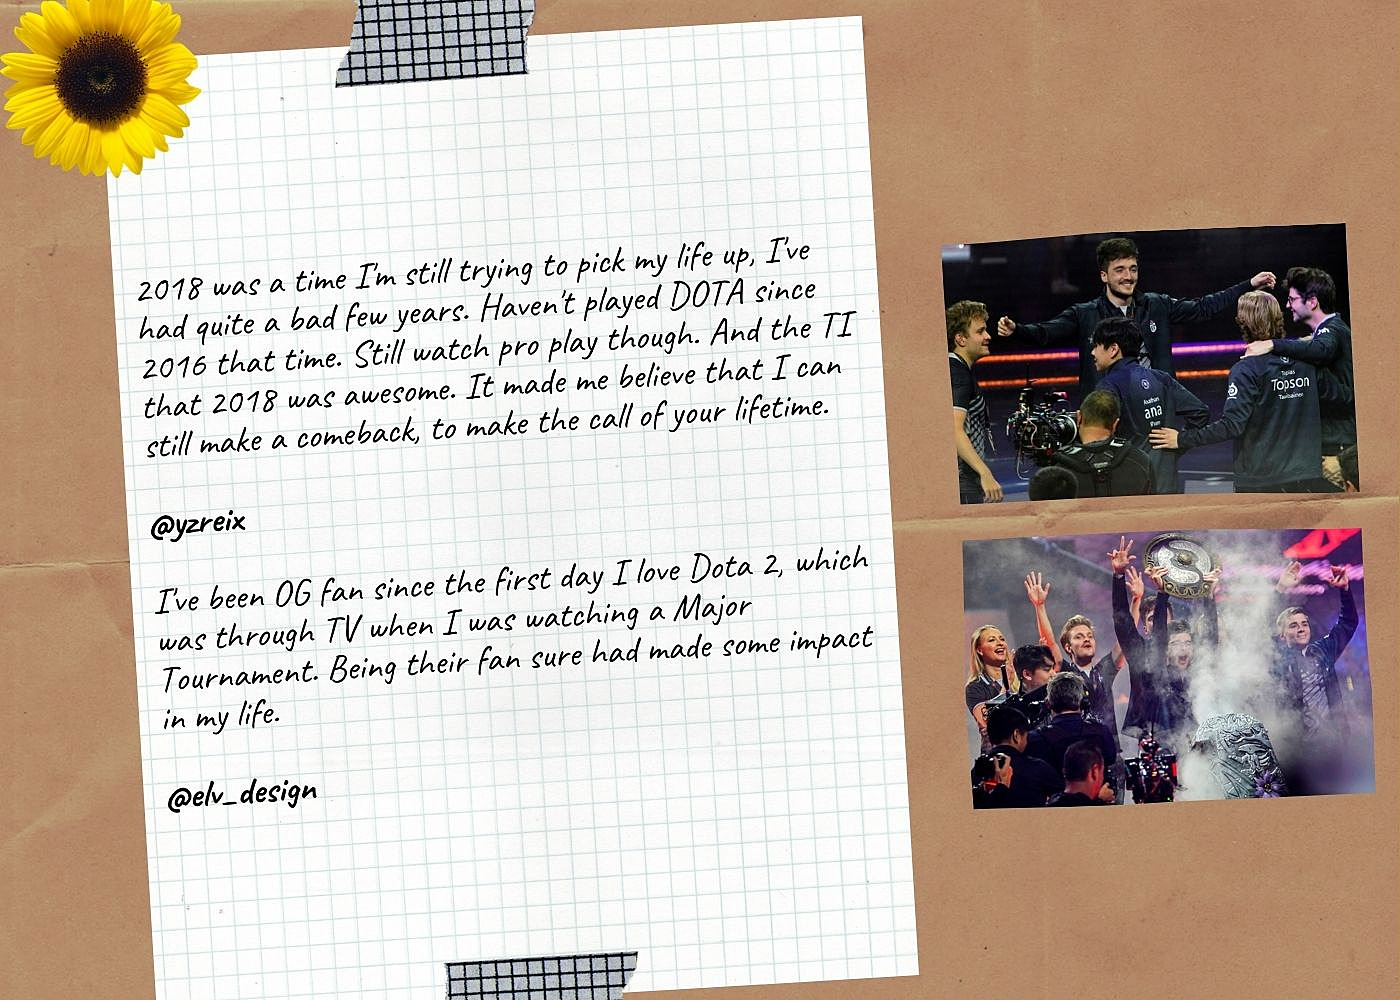 2018 was a time I'm still trying to pick my life up, I've
had quite a bad few years. Haven't played DOTA since
2016 that time. Still watch pro play though. And the TI
that 2018 was awesome. It made me believe that I can
still make a comeback, to make the call of your lifetime.
@yzreix
I've been OG fan since the first day I love Dota 2, which
was through TV when I was watching a Major
Tournament. Being their fan sure had made some impact
in my life.
@elv_design
ana
Topson